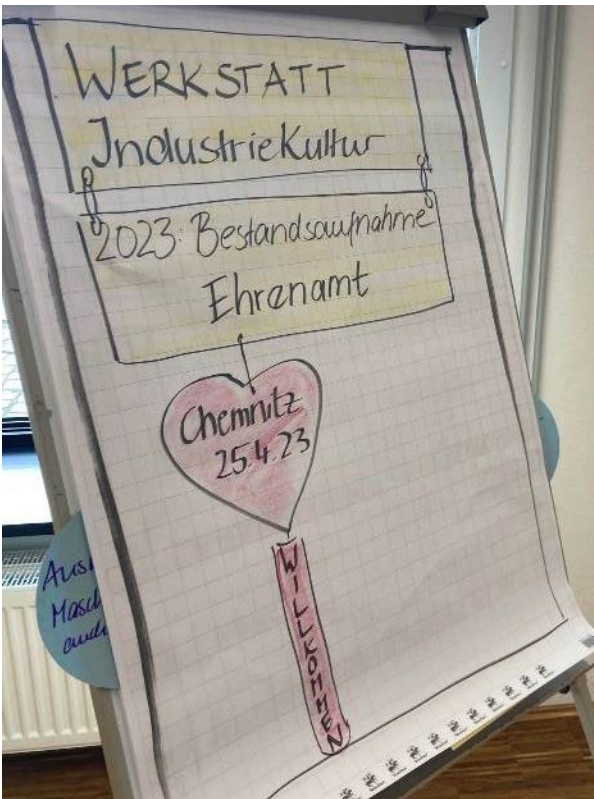 WERKSTATT
IndustrieKultur
2023: Bestandsaufnahme
Ehrenamt
Chemnitz
25.4.23
WILLKOMMEN